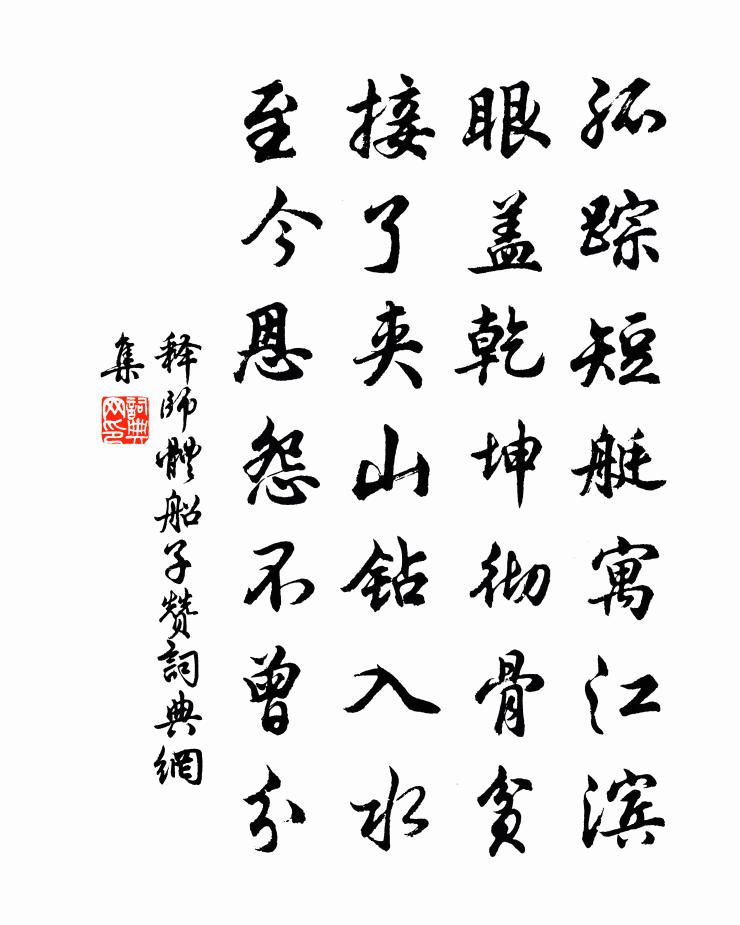 孤踪短艇寓江滨
眼盖乾坤彻骨贫
接了夹山钻入水
至今恩怨不曾分
释师體船子赞詞典網
集
詞典网印